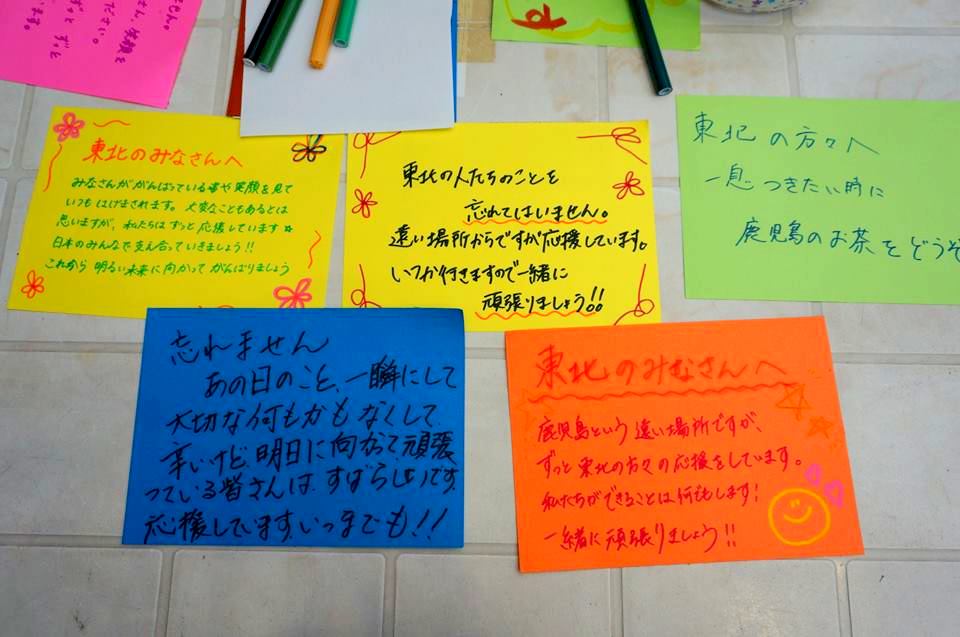 東北のみなさんへ
みなさんががんばっている事や笑顔を見て
いつもはげまされます。大変なこともあるとは
思いますが、私たちはずっと応援しています☆
日本のみんなで支え合っていきましょう!!
これから明るい未来に向かってがんばりましょう
東北の人たちのことを
忘れてはいません。
遠い場所からですが応援しています。
いつか行きますので一緒に
頑張りましょう!!
東北の方々へ
一息つきたい時に
鹿児島のお茶をどうぞ
忘れません
あの日のこと、一瞬にして
大切な何もかもなくして
辛いけど、明日に向かって頑張
っている皆さんは、すばらしいです。
応援しています。いつまでも!!
東北のみなさんへ
鹿児島という遠い場所ですが、
ずっと東北の方々の応援をしています。
私たちができることは何でもします!
一緒に頑張りましょう!!